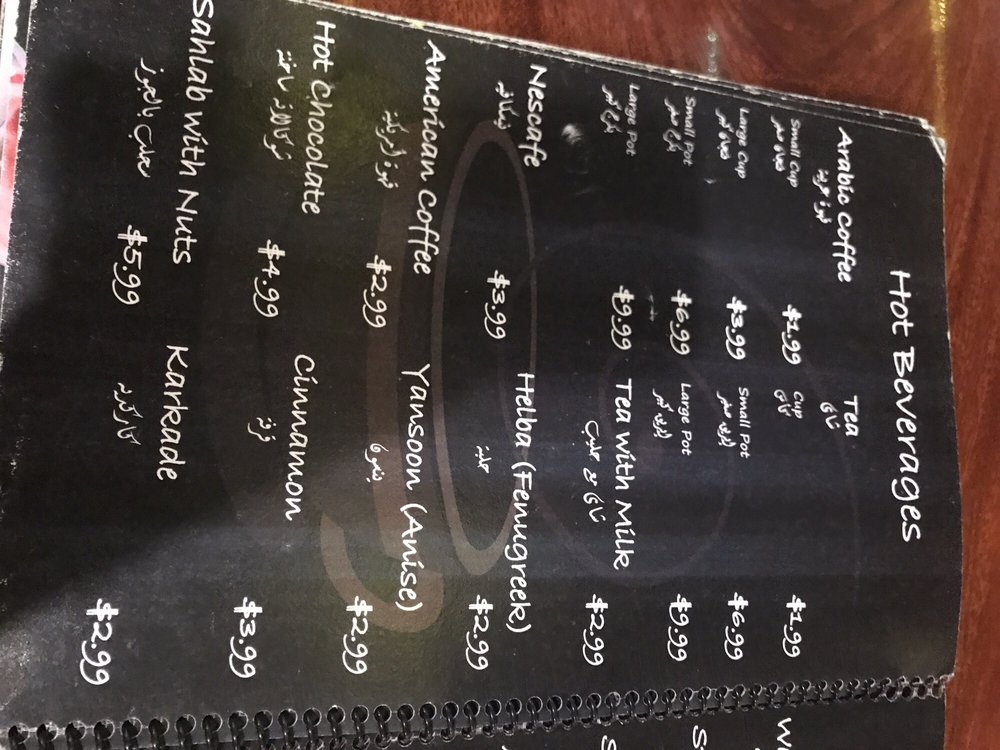 Hot Beverages
Arabic Coffee
قهوة عربية
Small Cup $1.99
فنجان صغير
Large Cup $3.99
فنجان كبير
Small Pot $6.99
بكرج صغير
Large Pot $9.99
بكرج كبير
Nescafe $3.99
نسكافيه
American Coffee $2.99
قهوة أمريكية
Hot Chocolate $4.99
شوكالاته ساخنة
Sahlab with Nuts $5.99
سحلب بالجوز
Tea
شاي
Cup $1.99
شاي
Small Pot $6.99
ابريق صغير
Large Pot $9.99
ابريق كبير
Tea with Milk $2.99
شاي مع حليب
Helba (Fenugreek) $2.99
حلبة
Yansoon (Anise) $2.99
ينسون
Cinnamon $3.99
قرفة
Karkade $2.99
كاركديه